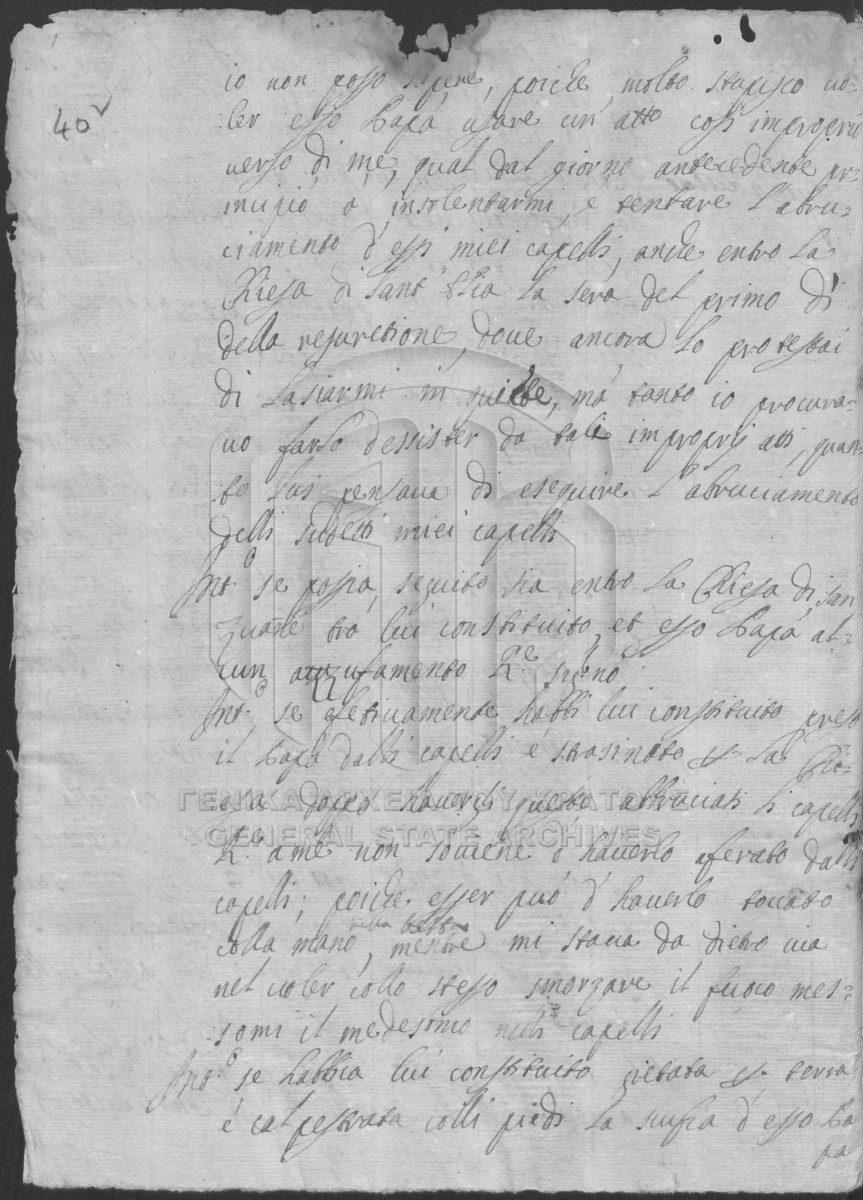 40v
io non posso sapere, poiche, molto stupisco uo=
ler esso Papà usare un' atto così improprio
uerso di me, qual dal giorno antecedente prin=
cipiò à insolentarmi, e tentare l'abru=
ciamento d'essi miei capelli, anche entro la
Chiesa di Sant' Elia la sera del primo dì
della resuretione, doue ancora lo protestai
di lasiarmi in quiette, mà tanto io procura=
uo farlo dessister da tali improprij atti, quan=
to lui pensaua di eseguire l'abruciamento
delli sudetti miei capelli
Int.o se possia seguito sia entro la Chiesa di San
Zuane trà lui constituito, et esso Papà al=
cun azzufamento R.e sig.r nò
Int.o se efetiuamente habbi lui constituito preso
il Papà dalli capelli è strasinato p la Chi=
esa doppo hauergli questo abbruciati li capelli
R.e a me non souiene d'hauerlo aferato dalli
capelli; poiche esser può d'hauerlo toccato
colla mano, nella testa mentre mi staua da dietro uia
nel uoler collo stesso smorzare il fuoco mes=
somi il medesimo nelli capelli
Int.o se habbia lui constituito gietata p terra
è calpestrata colli piedi la scufia d'esso Pa
pa
ΓΕΝΙΚΑ ΑΡΧΕΙΑ ΤΟΥ ΚΡΑΤΟΥΣ
GENERAL STATE ARCHIVES